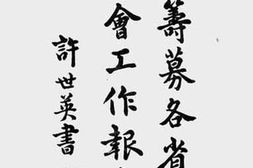 籌募各省
會工作報
許世英書